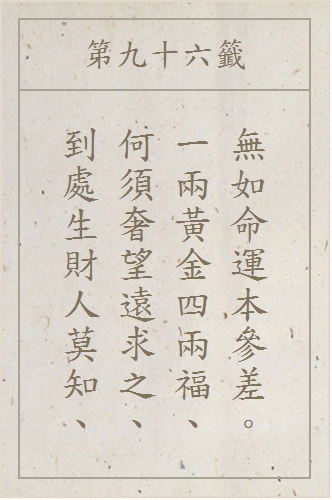 第九十六籤
無如命運本參差。
一兩黃金四兩福、
何須奢望遠求之、
到處生財人莫知、